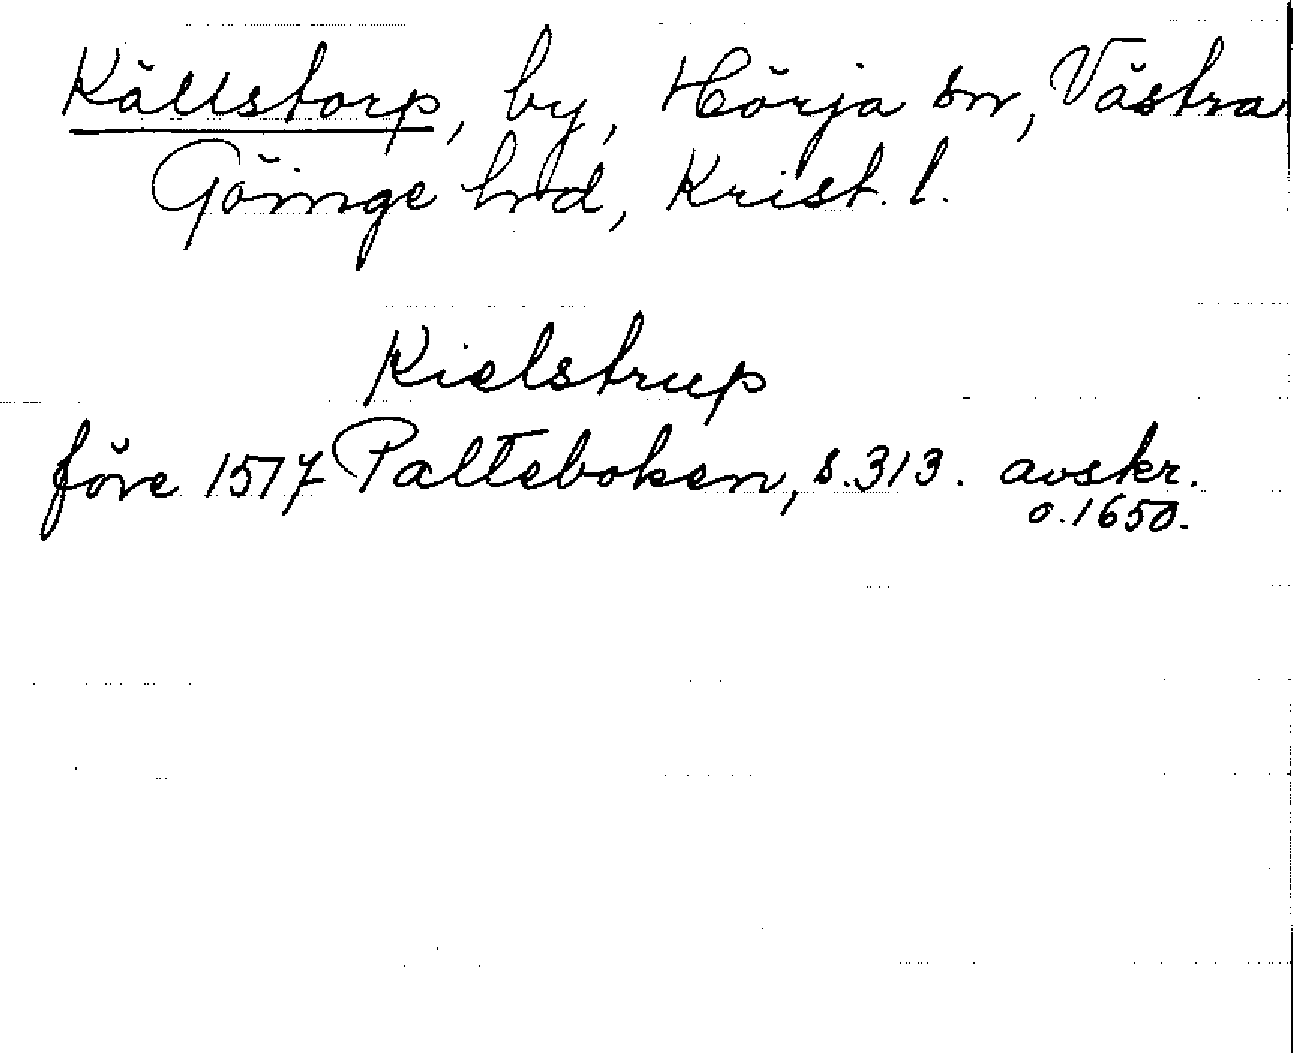 Källstorp, by, Hörja sn, Västra
Göinge hrd, Krist. l.
Kielstrup
före 1517 Palteboken, s. 313. avskr.
o. 1650.